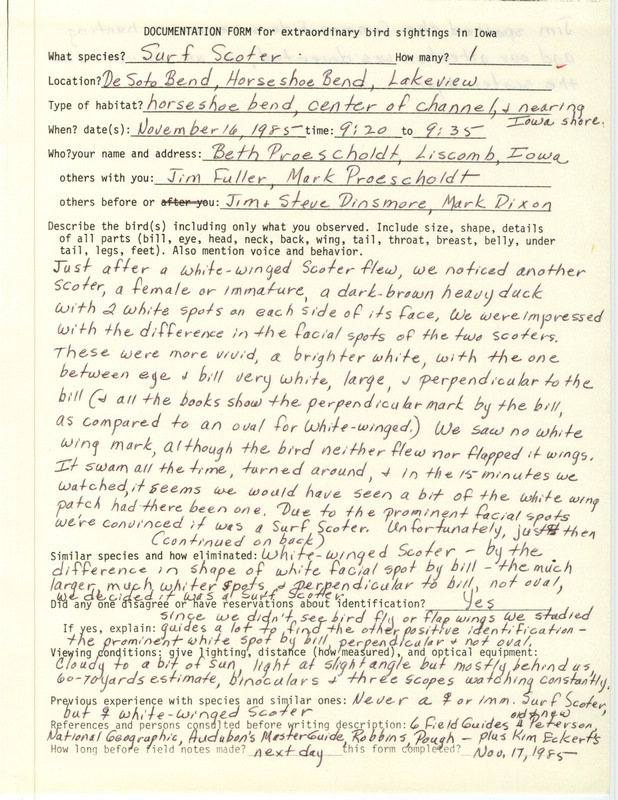 DOCUMENTATION FORM for extraordinary bird sightings in Iowa
What species? Surf Scoter How many? 1
Location? De Soto Bend, Horseshoe Bend, Lakeview
Type of habitat? horseshoe bend, center of channel, & nearing
Iowa shore.
When? date(s): November 16, 1985 time: 9:20 to 9:35
Who? your name and address: Beth Proescholdt, Liscomb, Iowa
others with you: Jim Fuller, Mark Proescholdt
others before or after you: Jim & Steve Dinsmore, Mark Dixon
Describe the bird(s) including only what you observed. Include size, shape, details
of all parts (bill, eye, head, neck, back, wing, tail, throat, breast, belly, under
tail, legs, feet). Also mention voice and behavior.
Just after a white-winged Scoter flew, we noticed another
scoter, a female or immature, a dark-brown heavy duck
with 2 white spots on each side of its face. We were impressed
with the difference in the facial spots of the two scoters.
These were more vivid, a brighter white, with the one
between eye & bill very white, large, & perpendicular to the
bill (& all the books show the perpendicular mark by the bill,
as compared to an oval for white-winged.) We saw no white
wing mark, although the bird neither flew nor flapped it wings.
It swam all the time, turned around, & in the 15 minutes we
watched, it seems we would have seen a bit of the white wing
patch had there been one. Due to the prominent facial spots
we're convinced it was a Surf Scoter. Unfortunately, just then
(continued on back)
Similar species and how eliminated: White-winged Scoter - by the
difference in shape of white facial spot by bill - the much
larger, much whiter spots & perpendicular to bill, not oval,
we decided it was a Surf Scoter.
Did any one disagree or have reservations about identification? Yes
since we didn't see bird fly or flap wings we studied
If yes, explain: guides a lot to find the other positive identification -
the prominent white spot by bill, perpendicular & not oval.
Viewing conditions: give lighting, distance (how measured), and optical equipment:
Cloudy to a bit of sun, light at slight angle but mostly behind us,
60-70 yards estimate, binoculars & three scopes watching constantly.
Previous experience with species and similar ones: Never a ♀ or imm. Surf Scoter,
but ♀ white-winged Scoter
old & new
References and persons consulted before writing description: 6 Field Guides Peterson,
National Geographic, Audubon's Master Guide, Robbins, Pough - plus Kim Eckert's
How long before field notes made? next day this form completed? Nov. 17, 1985